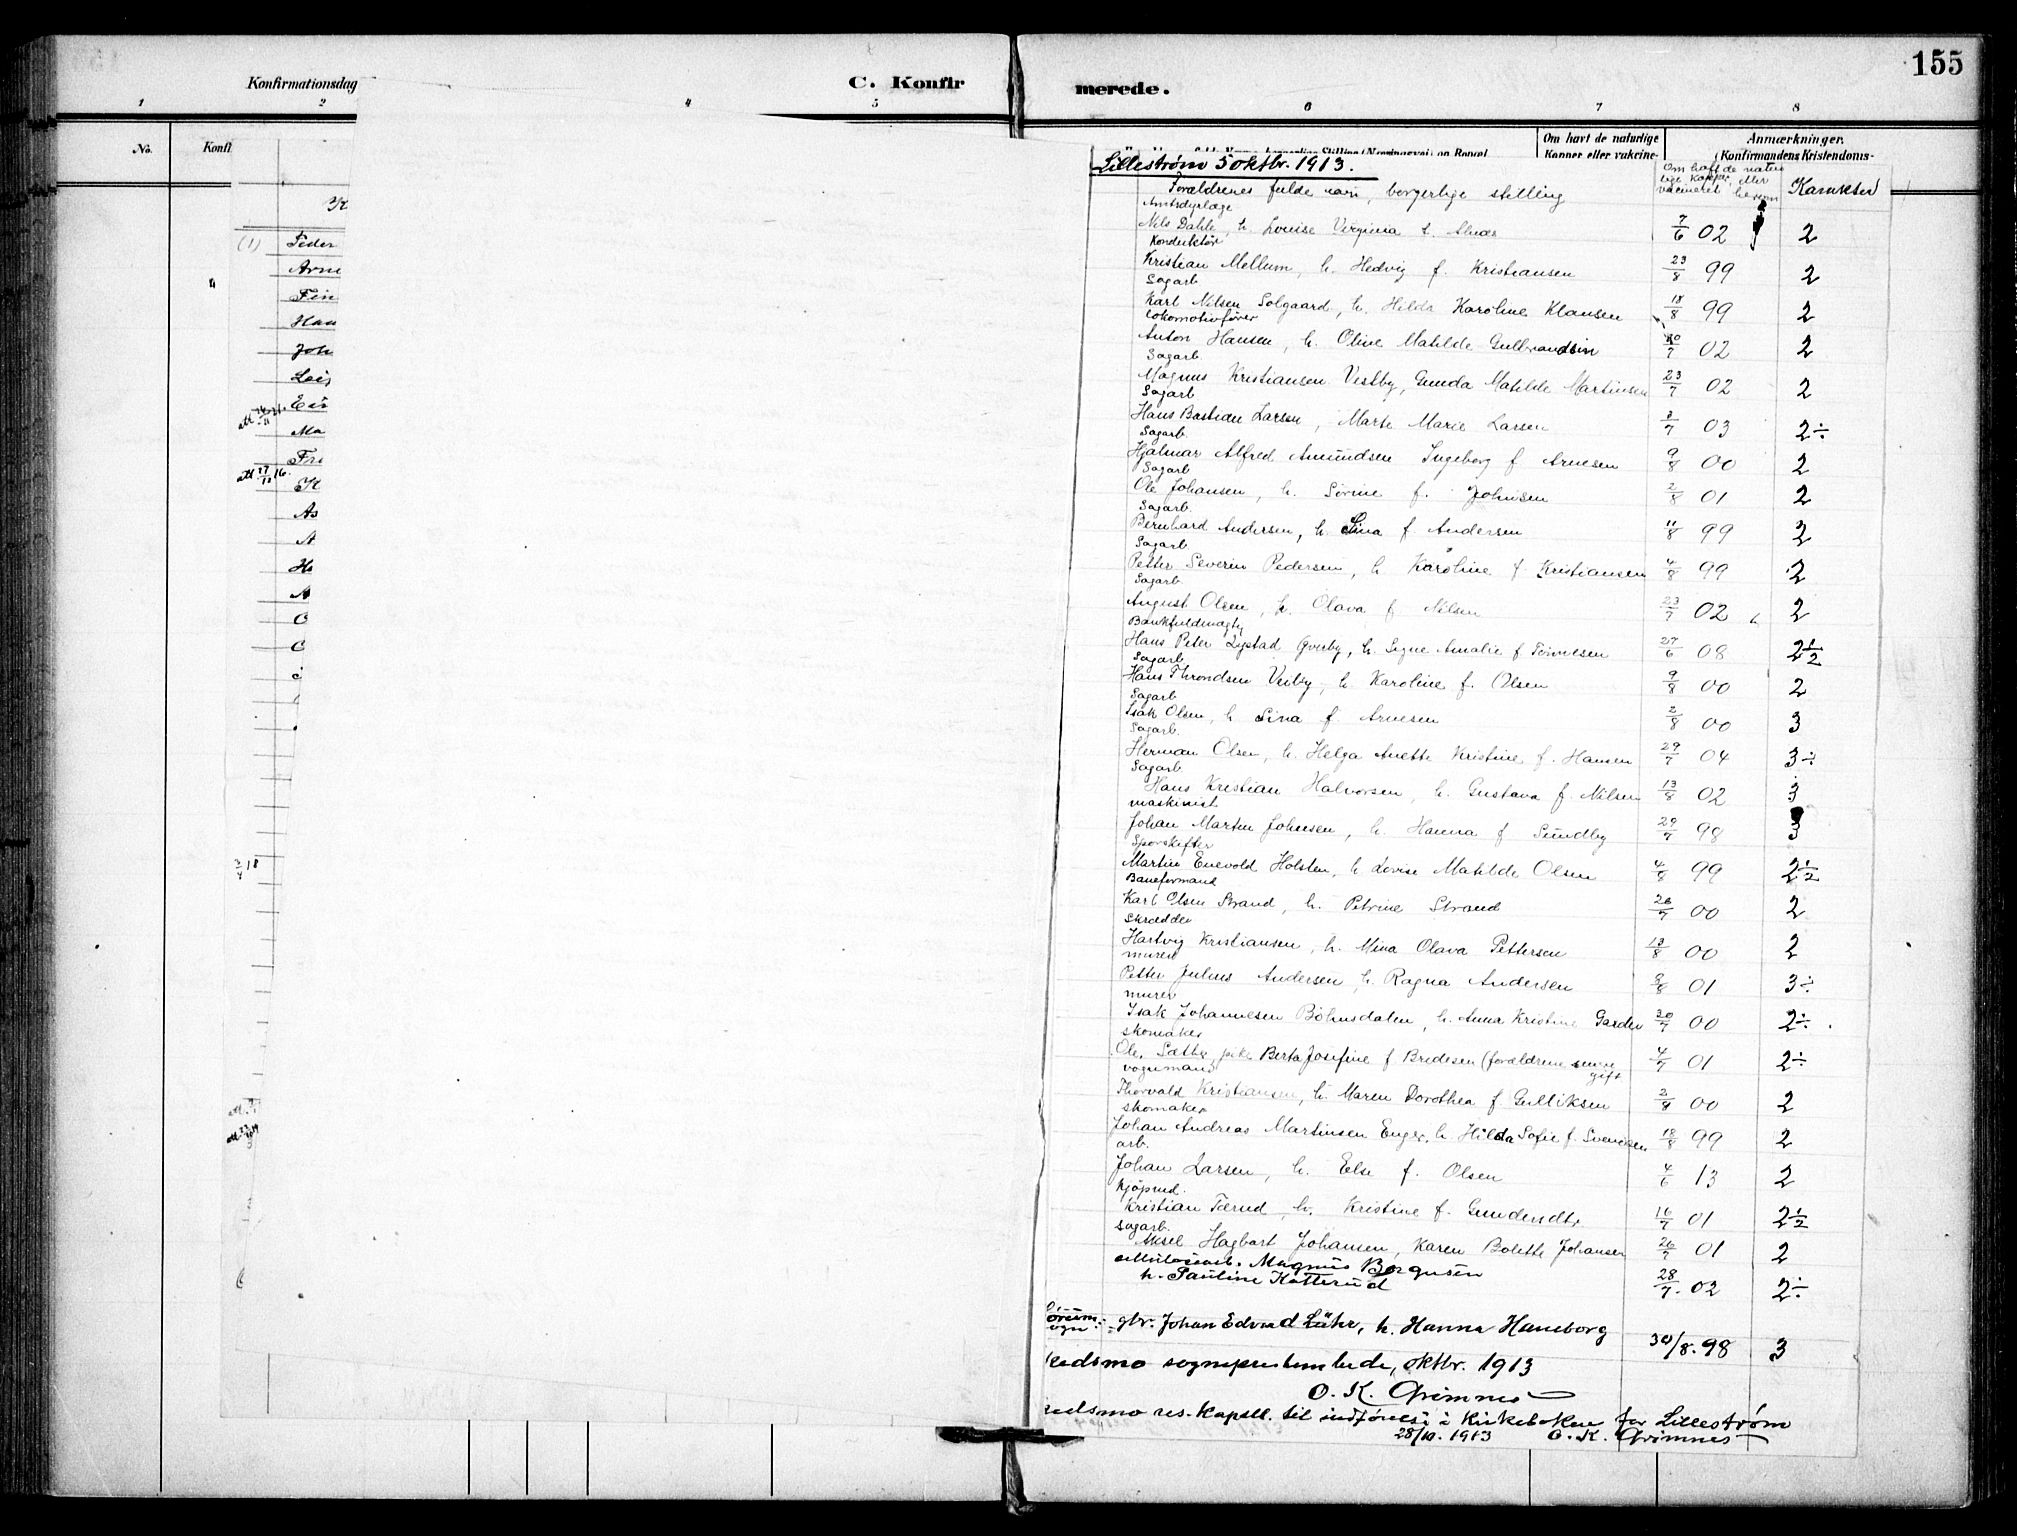 155
Konfirmationsdag
C. Konfir
merede.
1 2 4 5 6 7 8
No.
Konfi
Om havt de naturlige
Kopper eller vakcine-
Anmærkninger.
(Konfirmandens Kristendoms-
(1) Peder
Arne
Fin
Han
Joh
Leif
Ma
As
A
Lillestrøm 5 oktbr. 1913.
Forældrenes fulde navn, borgerlige stilling
Om haft de natur
lige kopper, eller
vacineret
Karakter
Amtsdyrlæge
Nils Dahle, h. Louise Virginia f. 7/6 02 2
Konduktør
Kristian Mellum, h. Hedvig f. Kristiansen 23/8 99 2
Sagarb
Karl Nilsen Solgaard, h. Hilda Karoline Klausen 18/8 99 2
Lokomotivfører
Anton Hansen, h. Oline Matilde Gulbrandsen 20/7 02 2
Sagarb.
Magnus Kristiansen Vestby, Gunda Matilde Martinsen 23/7 02 2
Sagarb
Hans Bastian Larsen, Marte Marie Larsen 3/7 03 2÷
Sagarb.
Hjalmar Alfred Amundsen Ingeborg f Arnesen 9/8 00 2
Sagarb
Ole Johansen, h. Sørine f. Johnsen 2/8 01 2
Sagarb.
Bernhard Andersen, h. Lina f Andersen 11/8 99 2
Sagarb
Petter Severin Pedersen, h Karoline f Kristiansen 4/8 99 2
Sagarb
August Olsen, h. Olava f Nilsen 23/7 02 2
Bankfuldmægtg
Hans Peter Lystad Qverby, h. Signe Amalie f Tønnesen 27/6 08 2 1/2
Sagarb
Hans Throndsen Veiby, h Karoline f. Olsen 9/8 00 2
Sagarb
Isak Olsen, h Sina f Arnesen 2/8 00 3
Sagarb.
Herman Olsen, h. Helga Anette Kristine f. Hansen 29/7 04 3÷
Sagarb
Hans Kristian Halvorsen, h. Gustava f. Nilsen 13/8 02 3
maskinist
Johan Martin Johnsen, h. Hanna f Sundby 29/7 98 3
Sporskifter
Martin Enevold Holsten, h Lovise Matilde Olsen 4/8 99 2 1/2
Baneformand
Karl Olsen Strand, h. Petrine Strand 26/7 00 2
Skrædder
Hartvig Kristiansen, h. Mina Olava Pettersen 13/8 00 2
murer
Petter Julius Andersen, h. Ragna Andersen 9/8 01 3÷
murer
Isak Johannesen Böhnsdalen, h. Anna Kristine Garder 30/7 00 2÷
skomaker
Ole Sætha, pike Berta Josefine f Bredesen (forældrene senere gift 4/7 01 2÷
vognmand
Thorvald Kristiansen, h. Maren Dorothea f. Gulliksen 2/8 00 2
skomaker
Johan Andreas Martinsen Enger, h. Hilda Sofie f. Svendsen 18/8 99 2
arb.
Johan Larsen, h. Else f. Olsen 4/6 13 2
Kjøpmd.
Kristian Tærud, h. Kristine f. Gundersdtr 16/7 01 2 1/2
sagarb.
Aksel Hagbart Johansen, Karen Bolette Johansen 26/7 01 2
cellulosearb. Magnus Borgersen
h. Pauline Katterud 28/7. 02 2÷
gbr. Johan Edvard Lühr, h. Hanna Haneborg 30/8. 98 3
kedsmo sogneprestembede, oktbr. 1913
O. K. Grimnes
kedsmo res. kapell. til indførelse i Kirkeboken for Lillestrøm
28/10. 1913 O. K. Grimnes